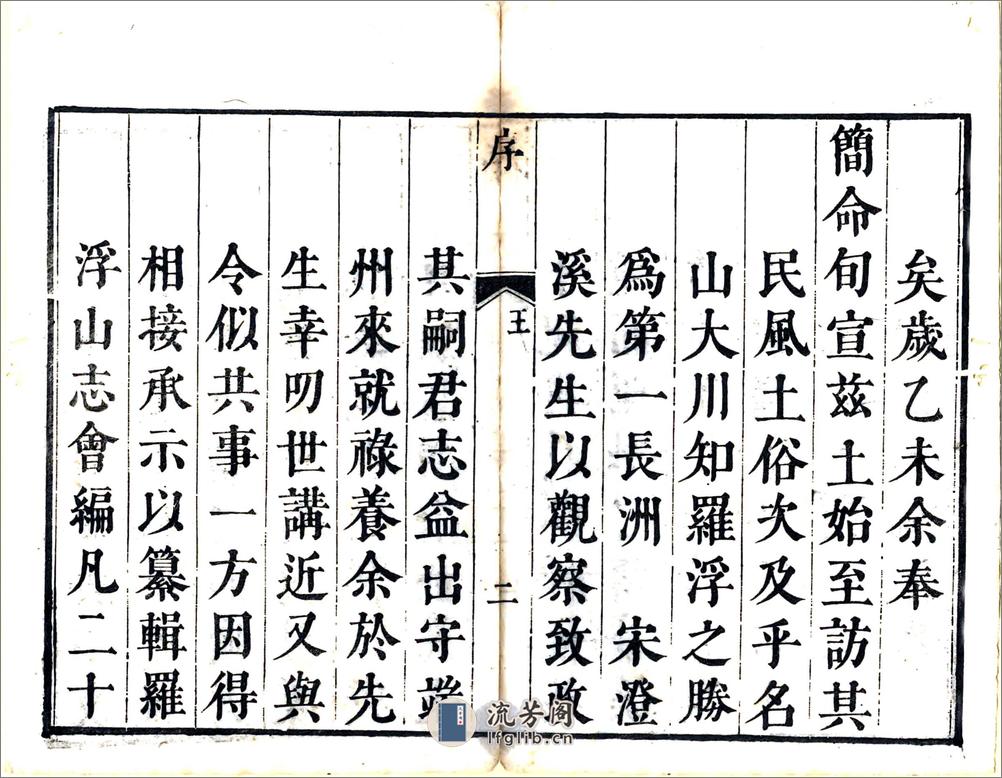 矣歲乙未余奉
簡命旬宣茲土始至訪其
民風土俗次及乎名
山大川知羅浮之勝
爲第一長洲　宋澄
溪先生以觀察致政
序
王
二
其嗣君志益出守端
州來就祿養余於先
生幸叨世講近又與
令似共事一方因得
相接承示以纂輯羅
浮山志會編凡二十
流芳阁
lfglib.cn